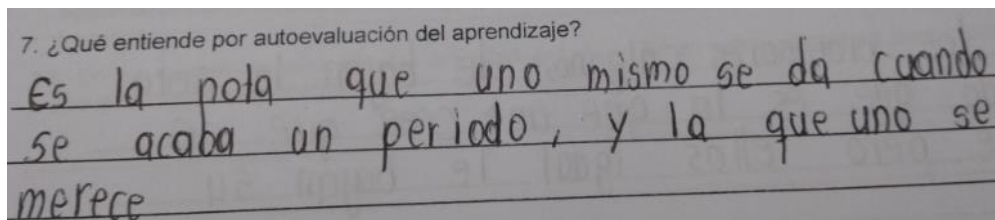 7. ¿Qué entiende por autoevaluación del aprendizaje?
Es la nota que uno mismo se da cuando
se acaba un periodo, y la que uno se
merece